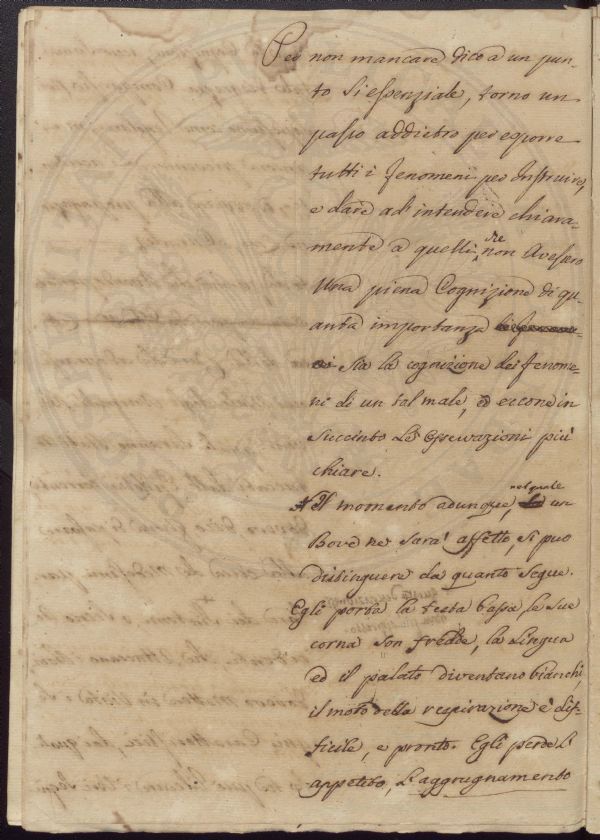 Per non mancare dico a un pun-
to si essenziale, torno un
passo addietro per esporre
tutti i fenomeni per Instruire,
e dare ad' intendere chiara-
mente a quelli, che non Avessero
Una piena Cognizione di qu-
anta importanza
sia la cognizione dei fenome-
ni di un tal male, ed eccone in
succinto Le Osservazioni più
chiare.
Nel momento adunque, nel quale un
Bove ne sarà affetto, si può
distinguere da quanto segue.
Egli porta la testa bassa, le sue
corna son fredde, la Lingua
ed il palato diventano bianchi,
il moto della respirazione è dif-
ficile, e pronto. Egli perde l'
appetito, L'aggrugnamento